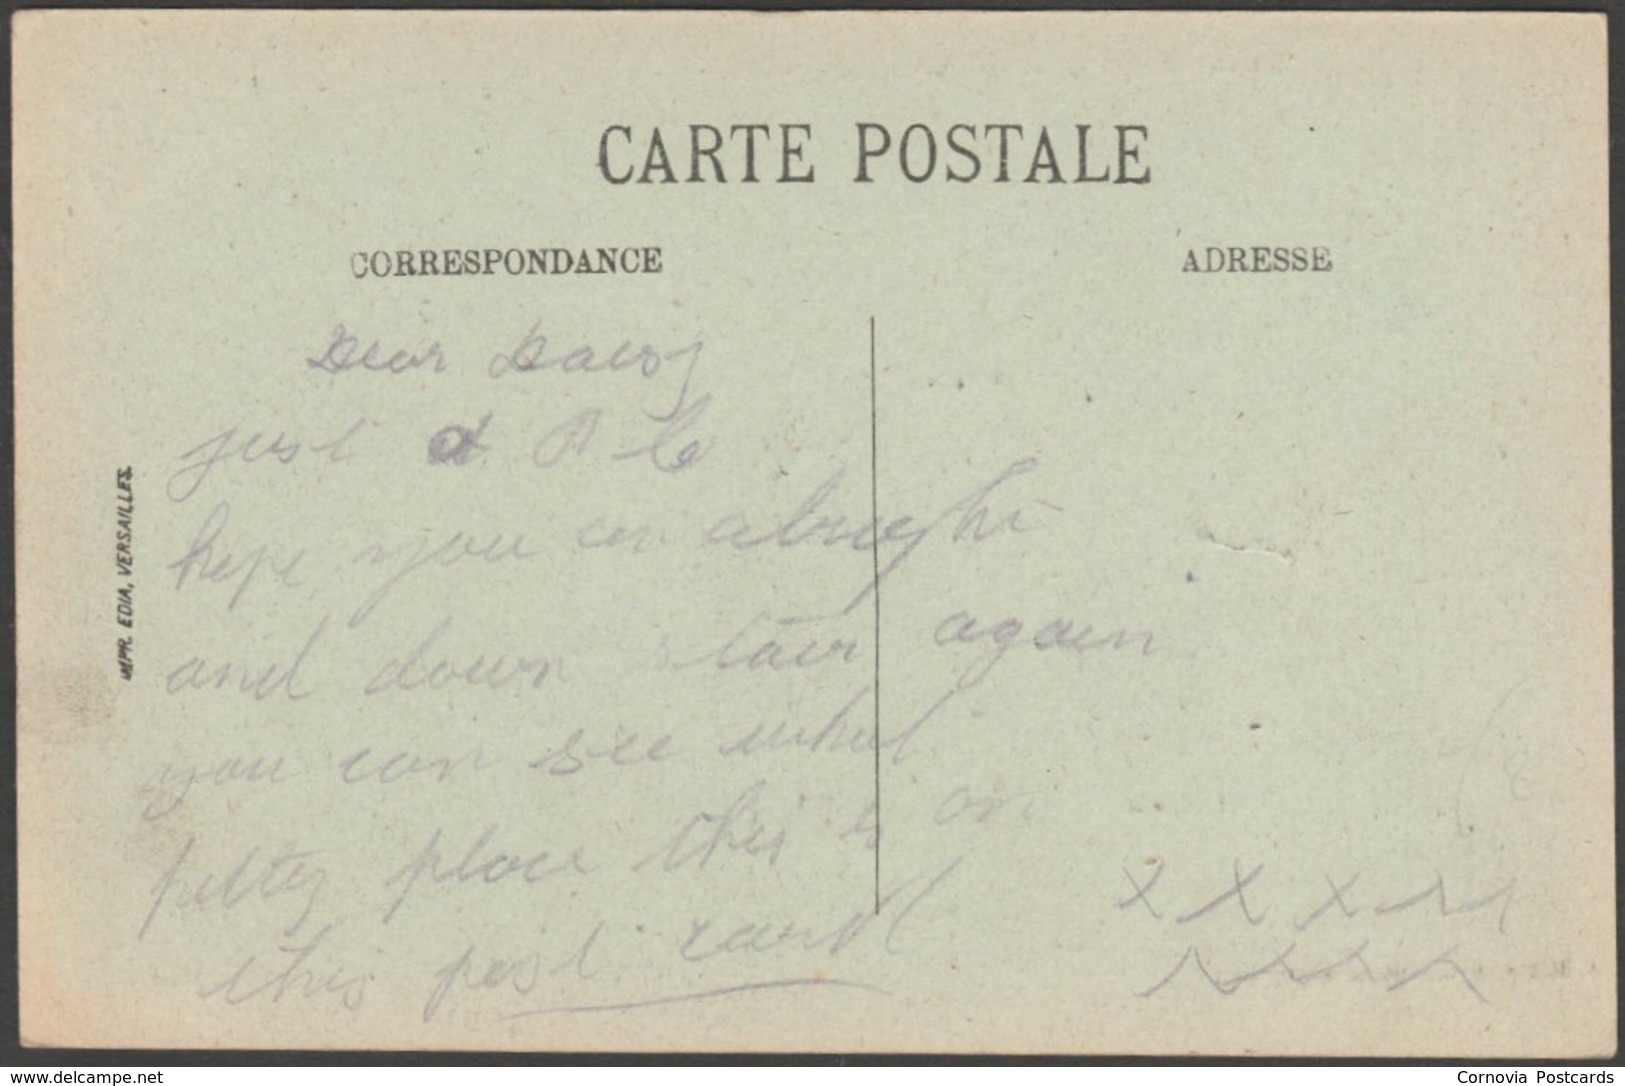 CARTE POSTALE
CORRESPONDANCE
ADRESSE
Dear Daisy
just a P C
hope you are alright
and down stair again
you can see what
pretty place this is on
this post card
x x x x x
x x x x
IMPR. EDIA, VERSAILLES.
www.delcampe.net
Cornovia Postcards